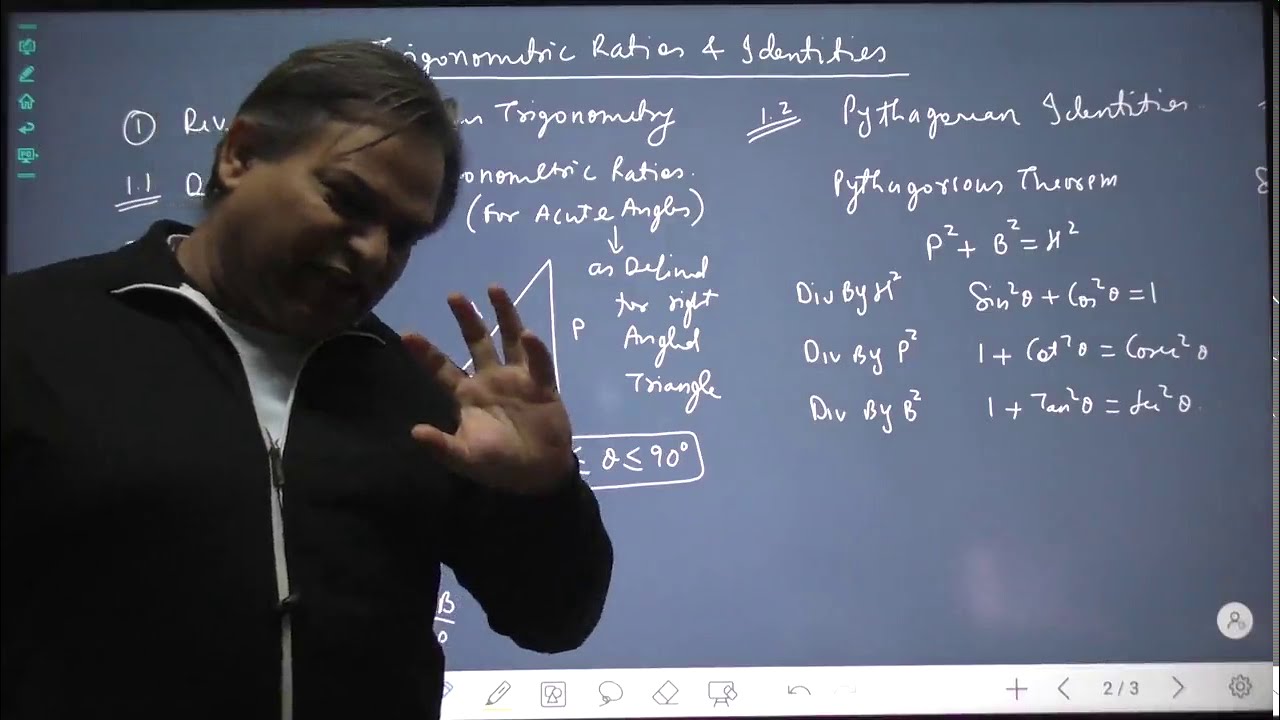 Trigonometric Ratios & Identities
① Rev Trigonometry
1.1 Ratios.
(For Acute Angles)
as Defined
for right
Angled
Triangle
P
θ ≤ 90°
B
1.2 Pythagorean Identities
Pythagorious Theorem
P² + B² = H²
Div By H² Sin²θ + Cos²θ = 1
Div By P² 1 + Cot²θ = Cosec²θ
Div By B² 1 + Tan²θ = Sec²θ.
2/3